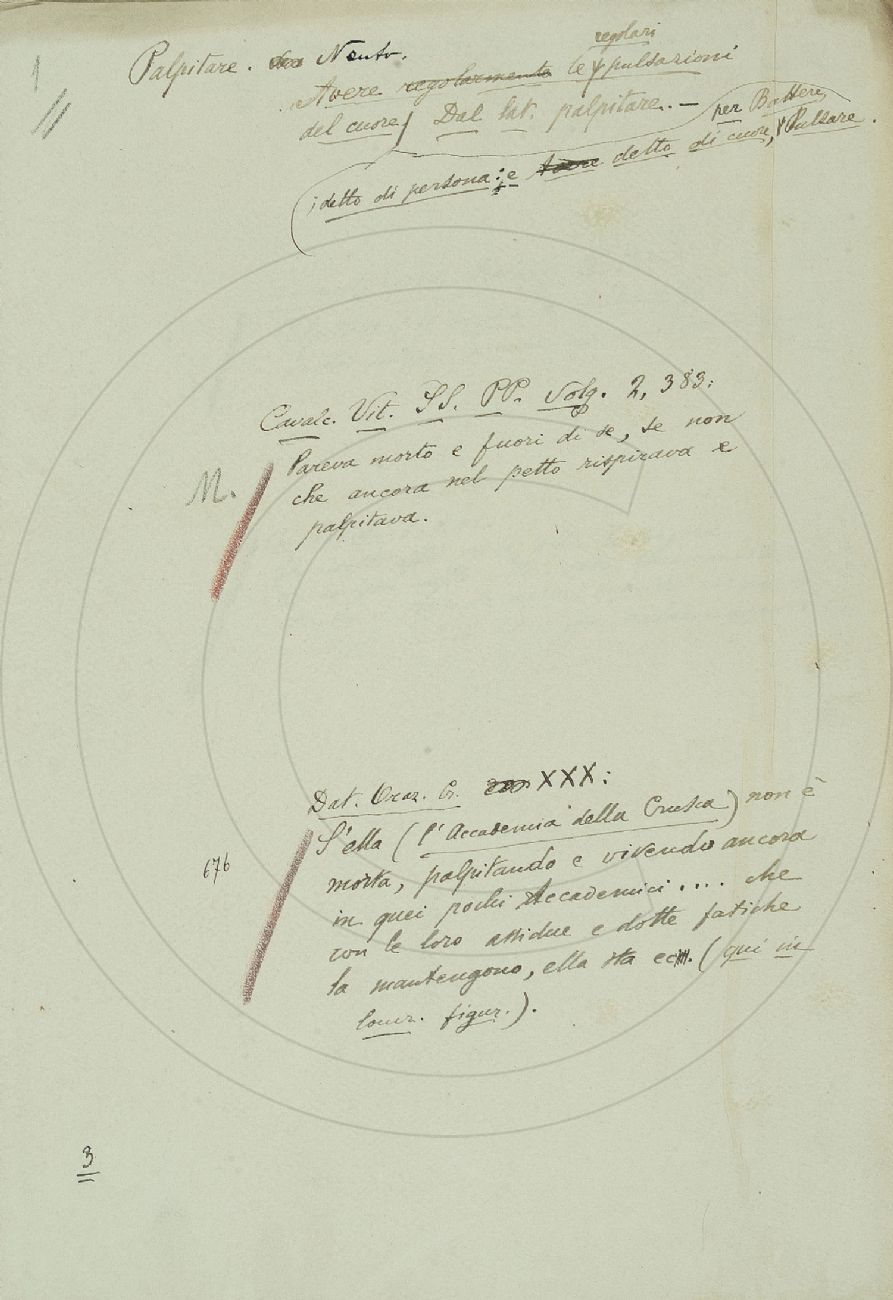 1
Palpitare. Neutr.
regolari
Avere regolarmente le pulsazioni
del cuore; Dal lat. palpitare. —
per Battere,
; detto di persona: e detto di cuore, Pulsare.
Cavalc. Vit. SS. PP. Volg. 2, 383:
Pareva morto e fuori di se, se non
che ancora nel petto rispirava e
palpitava.
M.
Dat. Oraz. Cr. XXX:
S'ella (l'Accademia della Crusca) non è
morta, palpitando e vivendo ancora
in quei pochi Accademici.... che
con le loro assidue e dotte fatiche
la mantengono, ella sta ec. (qui in
locuz. figur.).
676
3